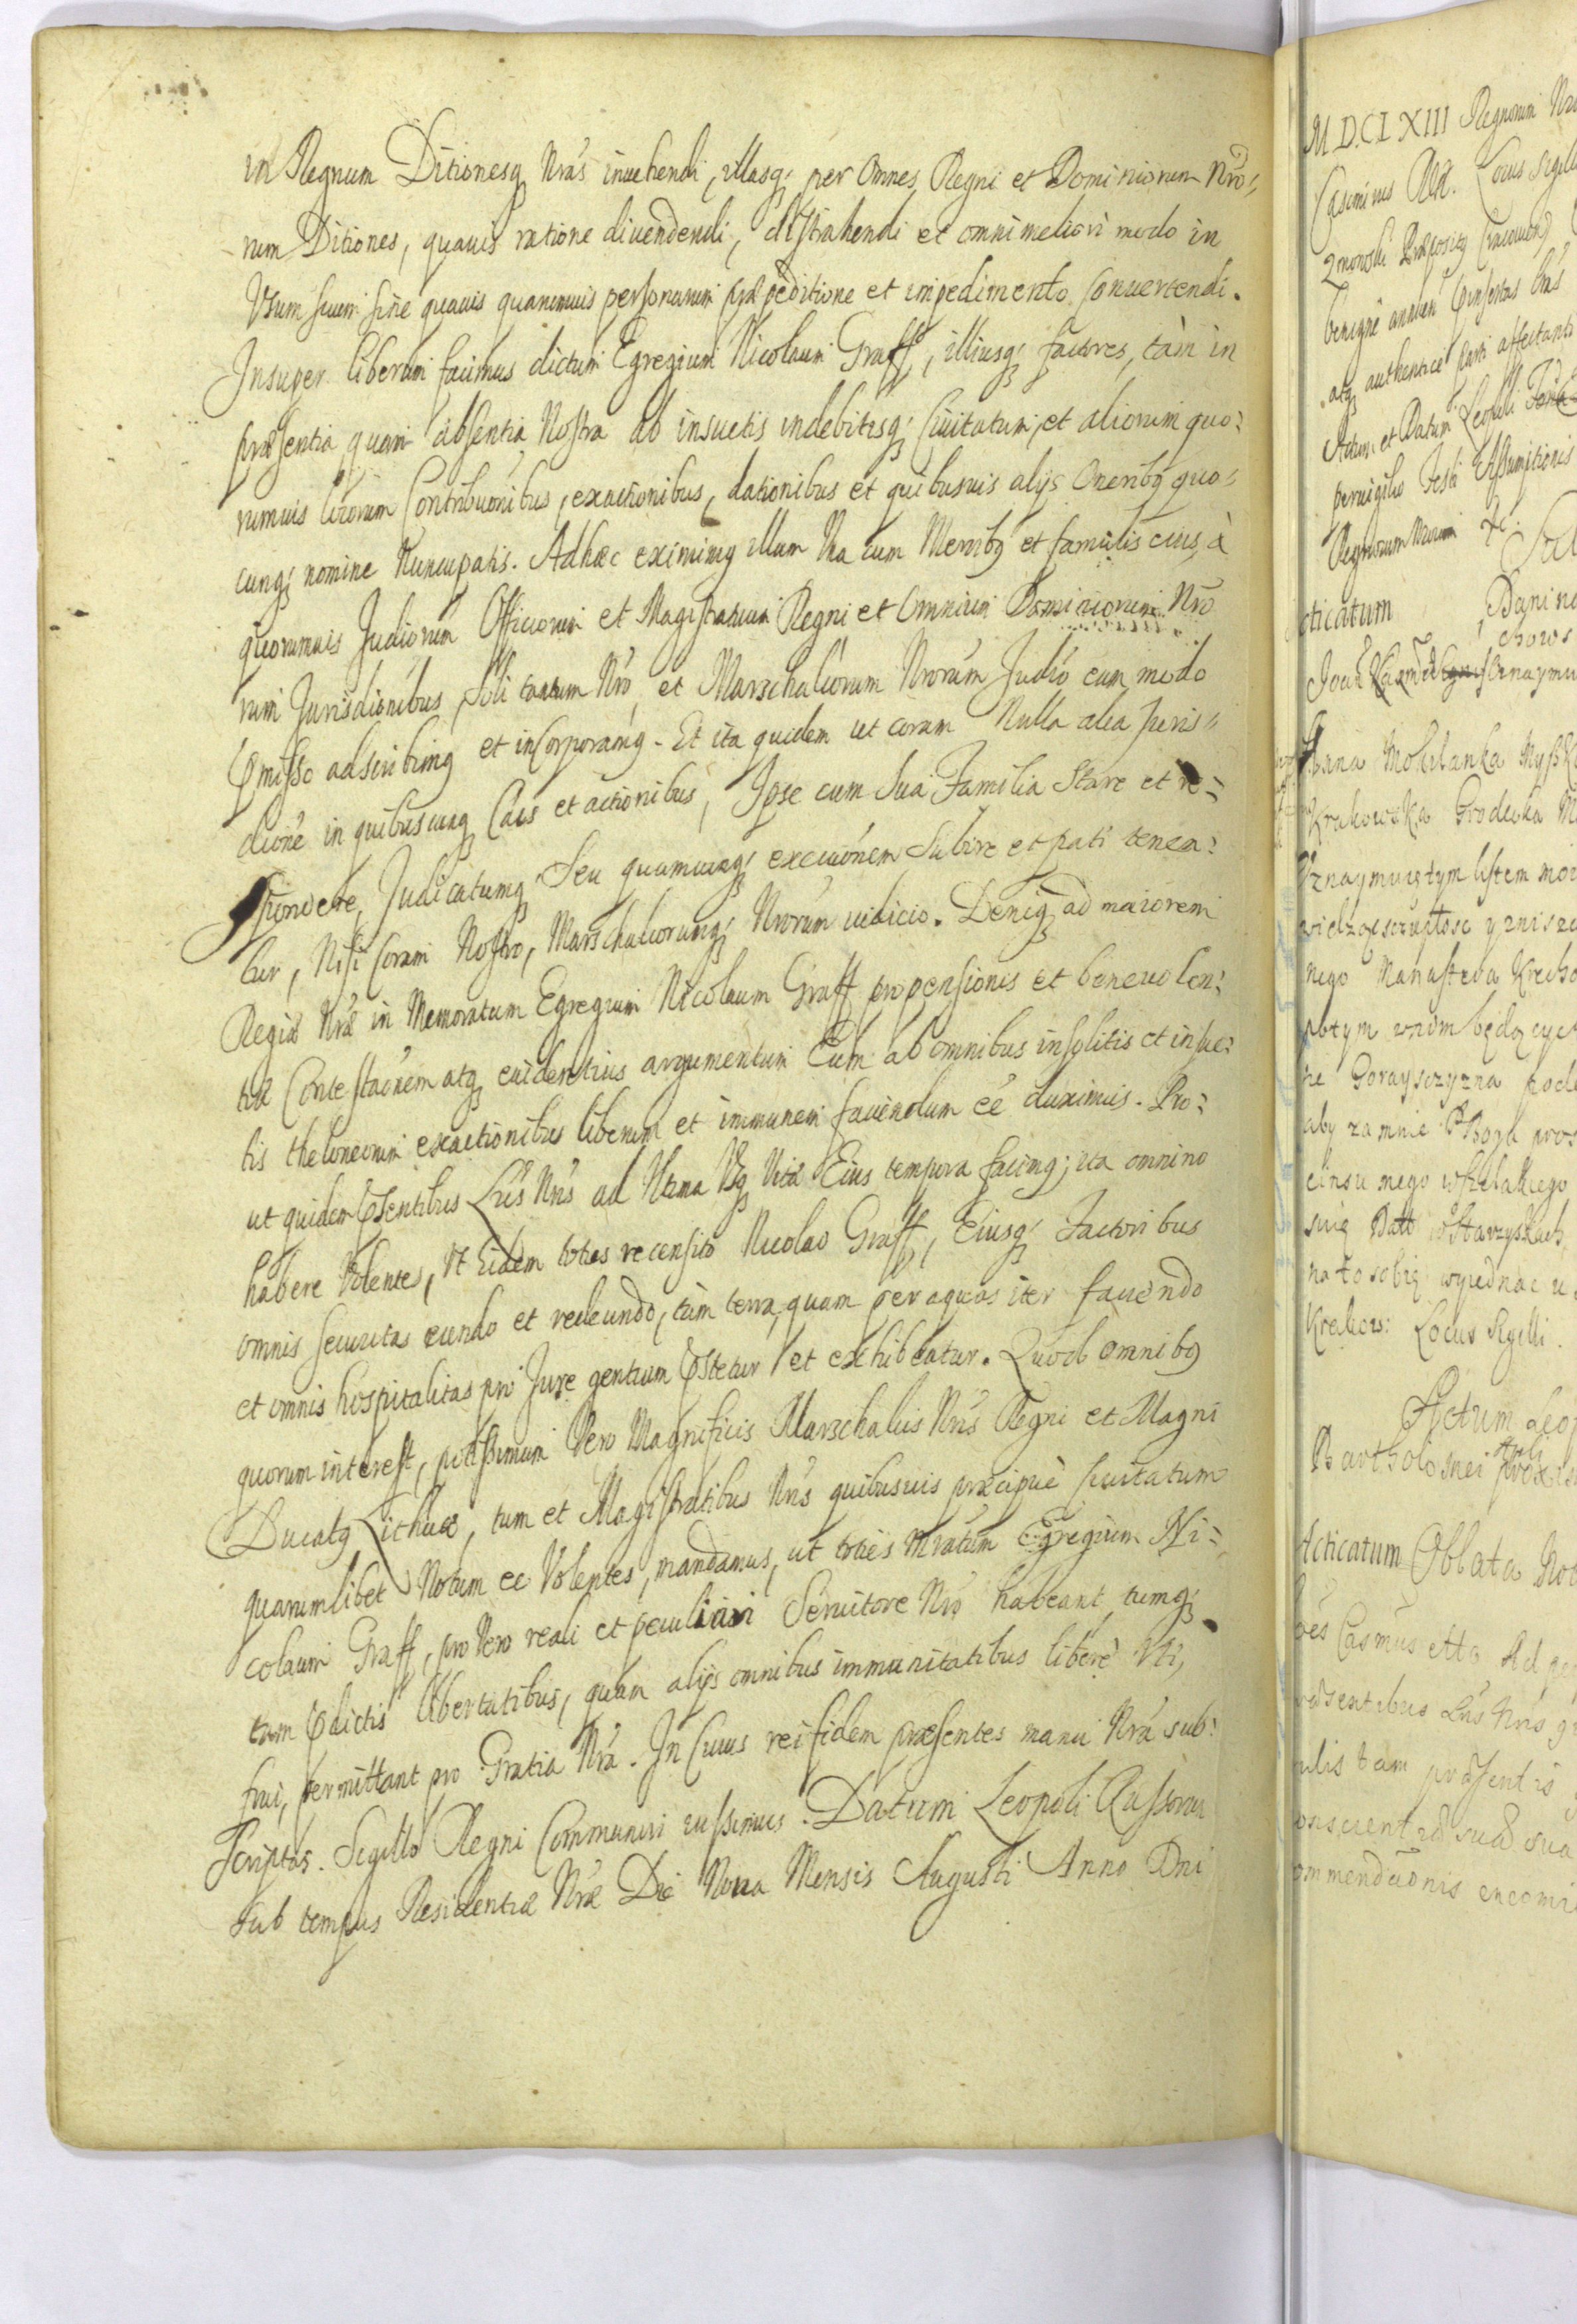 in Regnum Ditionesq Nras inuehendi, illasq per Omnes Regni et Dominiorum Nro
rum Ditiones, quauis ratione diuendendi, distrahendi et omni meliori modo in
Vsum suum sine quauis quarumuis personarum præpeditione et impedimento conuertendi.
Insuper liberum facimus dictum Egregium Nicolaum Graff, illiusq factores, tàm in
præsentia quam absentia Nostra ab insuetis indebitisq Ciuitatum, et aliorum quo:
rumuis locorum Contribuonibus, exactionibus, dationibus et quibusuis alijs Oneribq quo
cunq nomine Nuncupatis. Adhæc eximimq illum Vna cum Membq et famulis eius, à
quorumuis Judiorum Officiorum et Magistratuum Regni et Omnium Dominiorum Nro
rum Jurisdionibus, soli tantum Nro, et Marschalcorum Nrorum Judio eum modo
pmisso adscribimq et incorporamq. Et ita quidem ut coram Nulla alia Juris
dione in quibuscunq Cais et actionibus, Ipse cum Sua Familia Stare et re=
spondere, Judicatumq seu quamcunq execuonem Subire et pati tenea:
tur, Nisi coram Nostro, Marschalcorumq Nrorum iudicio. Deniq ad maiorem
Regiæ Nræ in Memoratum Egregium Nicolaum Graff propensionis et beneuolen:
tiæ Contestaonem atq euidentius argumentum Eum ab omnibus insolitis et insue:
tis theloneorum exactionibus liberum et immunem faciendum eé duximus. Pro:
ut quidem psentibus Lris Nris ad Vltima Vsq Vitæ Eius tempora facimq; ita omnino
habere Volentes, Vt Eidem toties recensito Nicolao Graff, Eiusq Factoribus
omnis securitas eundo et redeundo, tàm terra, quam per aquas iter faciendo
et omnis hospitalitas pro Jure gentium pstetur et exhibeatur. Quod omnibq
quorum interest, potissimum Vero Magnificis Marschalcis Nris Regni et Magni
Ducatq Lithuæ, tum et Magistratibus Nris quibusuis præcipuè Ciuitatum
quarumlibet Notum eé Volentes, mandamus, ut toties mratum Egregium Ni=
colaum Graff, pro Vero reali et peculiari Seruitore Nro habeant, eumq
tam pdictis libertatibus, quam alijs omnibus immunitatibus liberè Vti,
frui, permittant pro Gratia Nra. In Cuius rei fidem præsentes manu Nra sub:
scriptas. Sigillo Regni Communiri iussimus. Datum Leopoli Russorum
sub tempus Residentiæ Nræ Die Nona Mensis Augusti Anno Dni
M.D.C.L.XIII Regnorum
Casimirus Rex. Locus Sigilli
benigne
atq authentice parti affectanti
Actum et Datum Leopoli
peruigilio Festi Assumptionis
Regnorum
cticatum
Krakowska Grodecka
tym listem
nego
aby za mnie
Locus Sigilli.
Actum Leop
Bartholomei
Acticatum Oblata
Casmus
tam præsentis